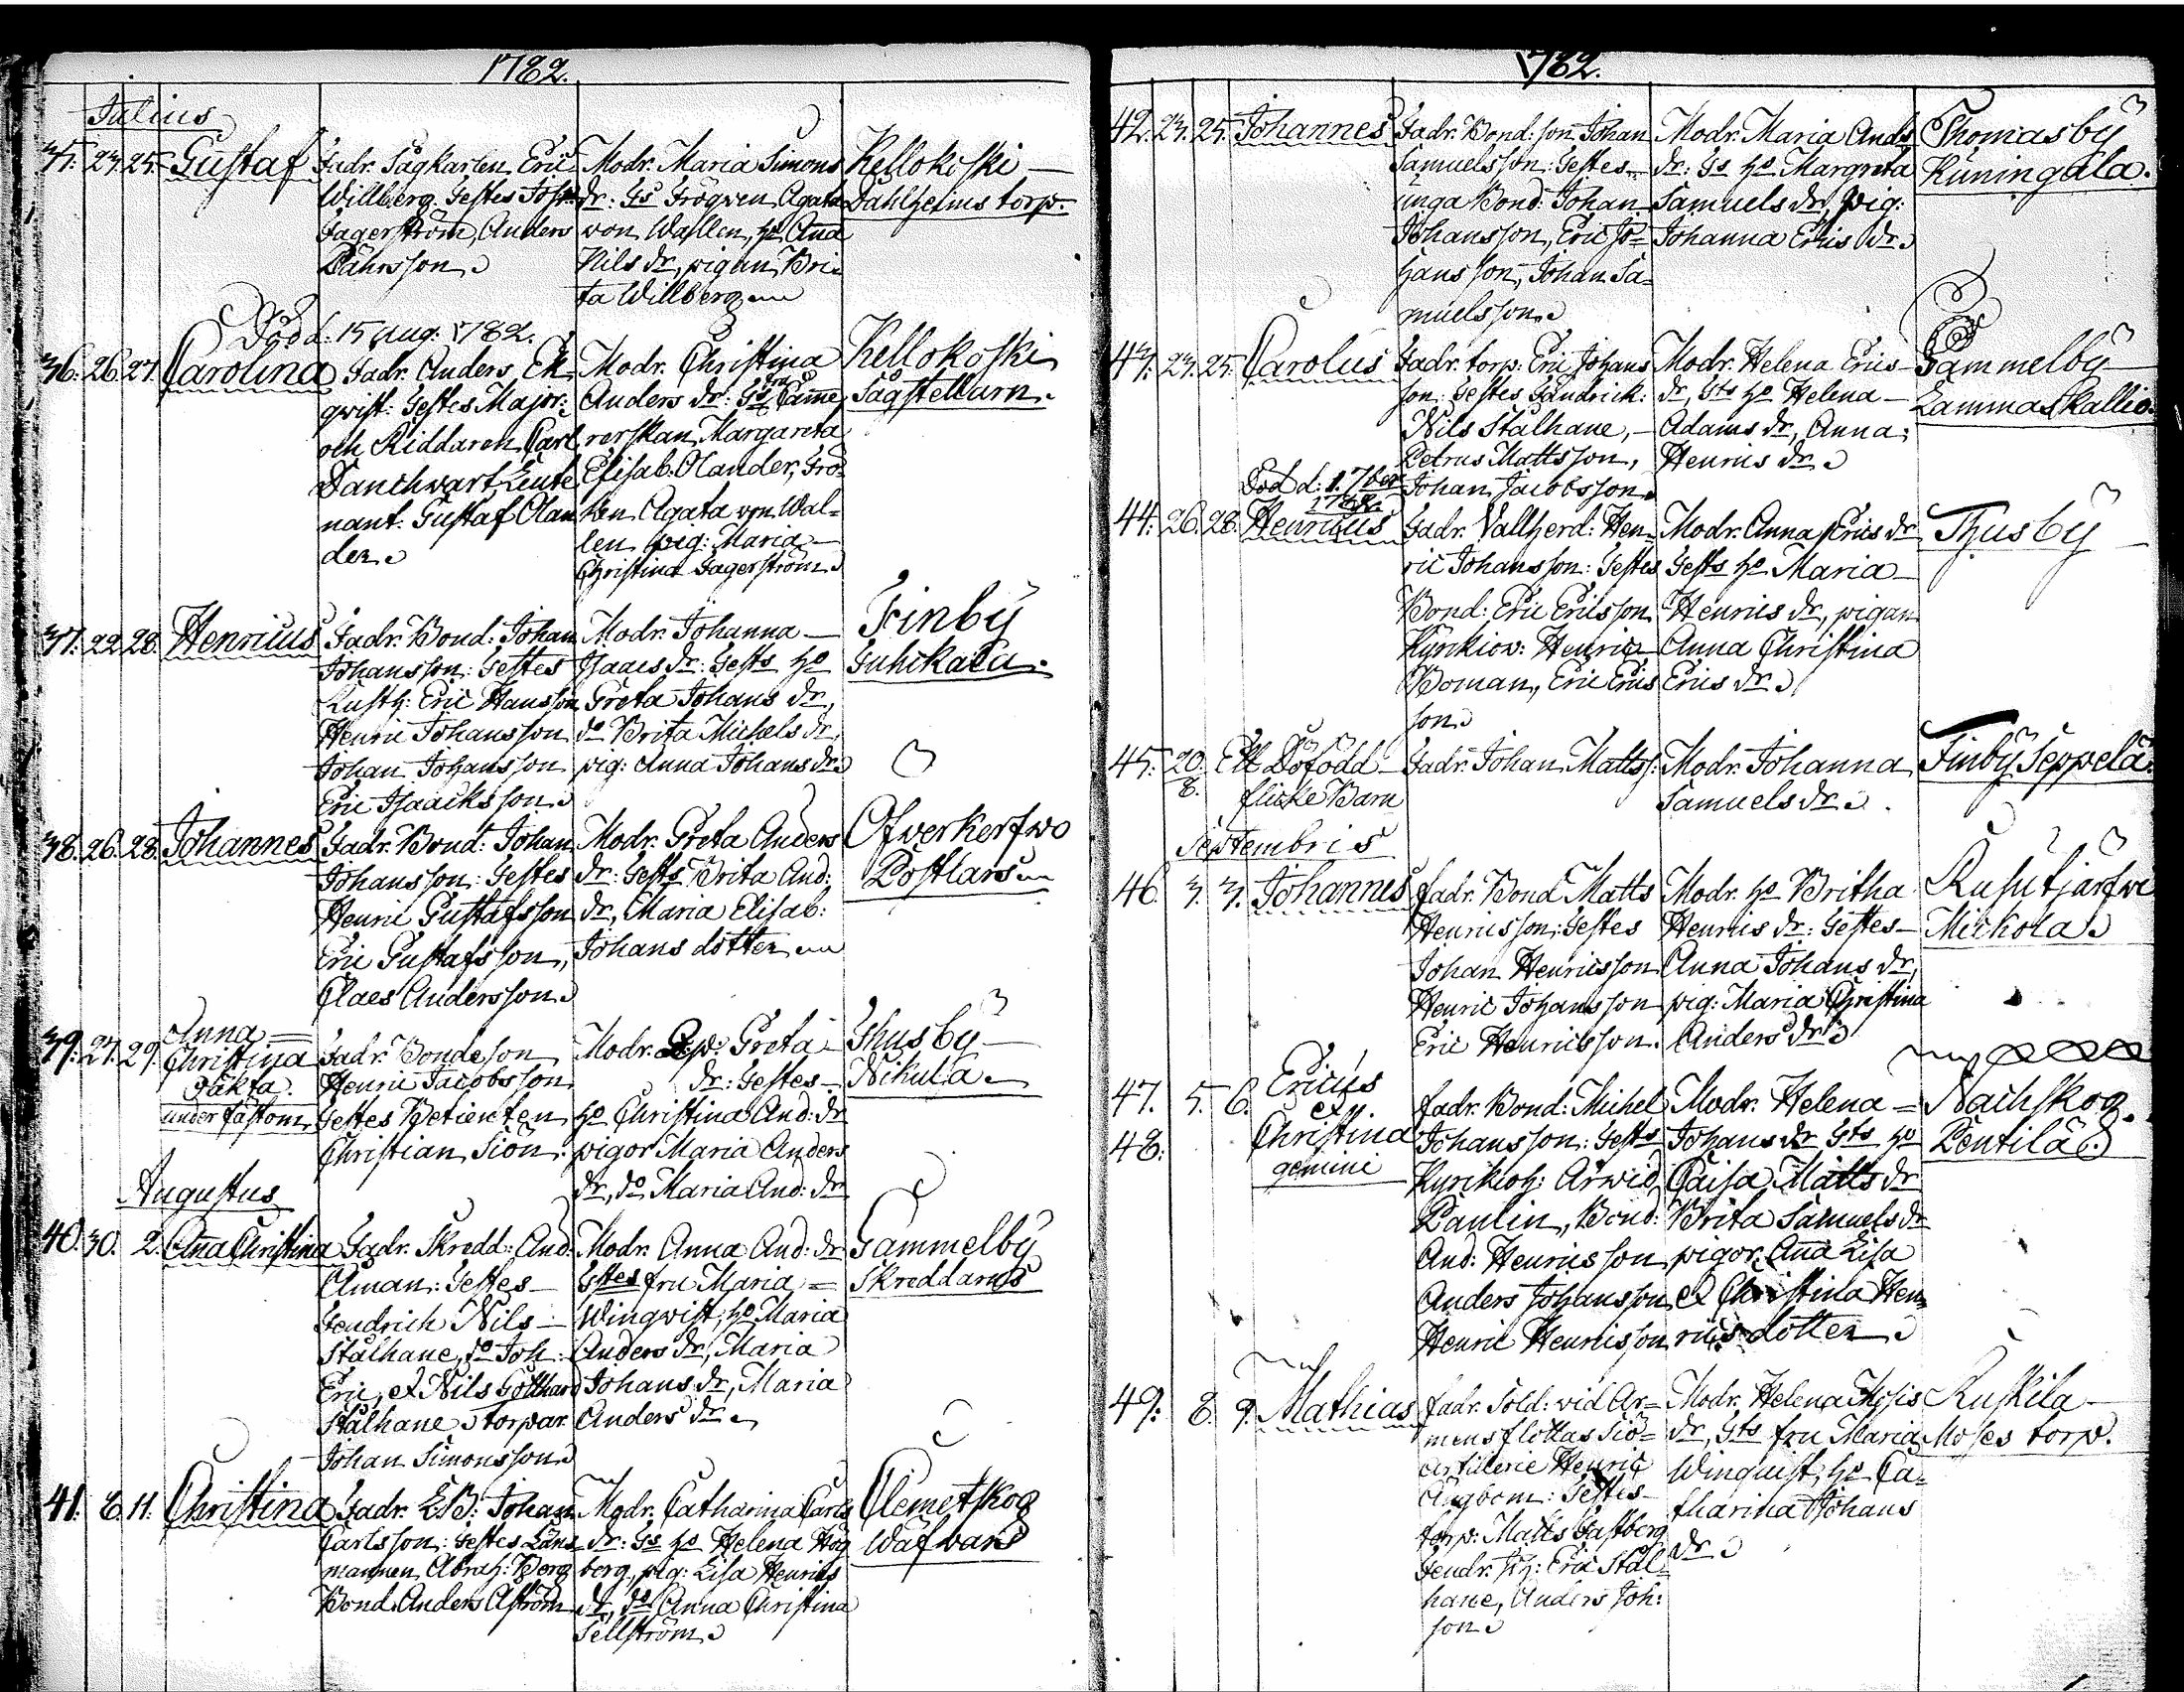 1782.
Julius
35. 23. 25. Gustaf
Fadr. Sågkarlen Eric
Willberg. Testes Joh:
Fagerström, Anders
Modr. Maria Simons
dr: Ts Frögren Agata
von Wallen, ho Aña
Nils dr, pigan Bri-
ta Willberg
Kellokoski
Dahlheims torp.
Död d. 15 Aug. 1782.
36. 26. 27. Carolina
Fadr. Anders Ek
qwist: Testes Major:
och Riddaren Carl
Danchwart, Leute
nant: Gustaf Olan
der
Modr. Christina
Anders dr: Ts Came
rerskan Margareta
Elisab. Olander, Frö
ken Agata von Wal=
len pig: Maria
Christina Fagerström
Kellokoski
Sågstellarn.
37. 22. 28. Henricus
Fadr. Bond: Johan
Johansson: Testes
Rusth: Eric Hansson
Henric Johansson
Johan Johansson
Eric Isaacksson
Modr. Johanna
Isaacs dr: Tests ho
Greta Johans dr,
do Brita Michels dr,
pig: Anna Johans dr
Finby
Juhickala.
38. 26. 28. Johannes
Fadr. Bond: Johan
Johansson: Testes
Henric Gustafsson
Eric Gustafsson,
Claes Andersson
Modr. Greta Anders
dr: Tests Brita And:
dr, Maria Elisab:
Johans dotter
Ofwerkerfwo
Postlars
39. 27. 29. Anna
Christina
oäkta.
under fästom
Fadr. Bondeson
Henric Jacobsson
Testes Betienten
Christian Siön:
Modr. Greta
dr: Testes
ho Christina And: dr
pigor Maria Anders
dr, do Maria And: dr
Thusby
Nikula
Augustus
40. 30. 2. Aña Christina
Fadr. Skredd: And:
Öman: Testes
Fendrich Nils
Stålhane, do Joh:
Eric, et Nils Gotthard
Stålhane, torpar.
Johan Simonsson
Modr. Anna And: dr
Tstes fru Maria =
Wingwist, ho Maria
Anders dr, Maria
Johans dr, Maria
Anders dr
Gammelby
Skreddars
41. 8. 11. Christina
Fadr. LB: Johan
Carlsson: Testes Läns
mannen Abrah: Berg
Bond. Anders Aström
Modr. Catharina Carls
dr: Ts ho Helena Hög
berg, pig: Lisa Henrics
dr, do Anna Christina
Sellström
Clemetskog
Wäfvars
1782.
42. 23. 25. Johannes
Fadr. Bond: son Johan
Samuelsson: Testes
unga Bond: Johan
Johansson, Eric Jo=
hansson, Johan Sa=
muelsson
Modr. Maria Ands
dr: Ts ho Margreta
Samuels dr, pig:
Johanna Erics dr
Thomasby
Kuningala.
43. 23. 25. Carolus
Fadr. torp: Eric Johans
son: Testes Fändrick:
Nils Stålhane,
Petrus Mattsson,
Johan Jacobsson
Modr. Helena Erics
dr, Tts ho Helena
Adams dr, Anna
Henrics dr
Gammelby
Lammaskallio.
Död d: 1. 7ber
1782.
44. 26. 28. Henricus
Fadr. Vallherd: Hen=
ric Johansson: Testes
Bond: Eric Ericsson
Kyrkiov: Henric
Boman, Eric Erics
son
Modr. Anna Erics dr
Tests ho Maria
Henrics dr, pigan
Anna Christina
Erics dr
Thusby
45. 20.
8. Ett Döfödd
flicke Barn
Fadr. Johan Mattss:
Modr. Johanna
Samuels dr
Finby Seppelä.
Septembris
46. 3. 3. Johannes
fadr. Bond Matts
Henricsson: Testes
Johan Henricsson
Henric Johansson
Eric Henricsson.
Modr. ho Britha
Henrics dr: Testes
Anna Johans dr,
pig: Maria Christina
Anders dr
Rusutjärfwi
Mickola
47. 5. 6. Ericus
et
48. Christina
gemini
fadr. Bond: Michel
Johansson: Tests
Kyrckioh: Arwid
Paulin, Bond:
And: Henricsson
Anders Johansson
Henric Henricsson
Modr. Helena =
Johans dr Tts ho
Caisa Matts dr
Brita Samuels dr
pigor Aña Lisa
et Christina Hen
rics dotter
Nachskog.
Pentilä
49. 8. 9. Mathias
fadr. Sold: vid Ar=
mens flottas Siö=
artillerie Henric
Ångbom: Testes
torp: Matts Gastberg
Fendr. hh: Eric Stål=
hane, Anders Joh:
son
Modr. Helena Thosis
dr, Tts fru Maria
Winquist, ho Ca=
tharina Johans
dr
Ruskila
Moses torp.